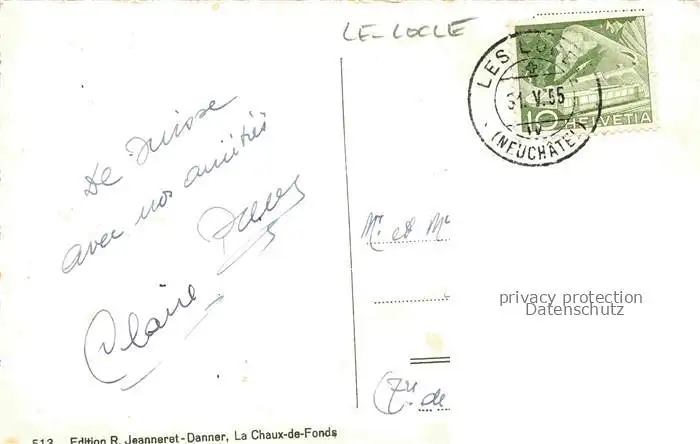 LE-LOCLE
LES
31.V.55
(NEUCHÂTEL)
10 HELVETIA
De Suisse
avec nos amitiés
Claire
Mr. et M
privacy protection
Datenschutz
de
513 Edition R. Jeanneret-Danner, La Chaux-de-Fonds